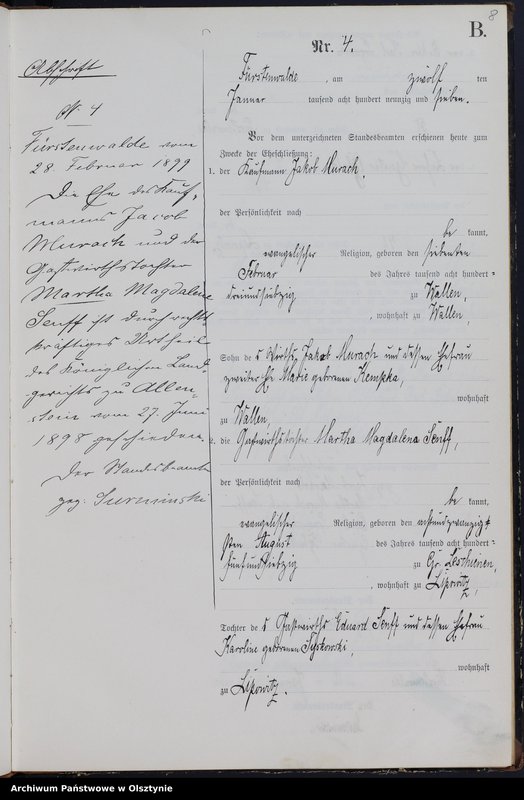 8
B.
Nr. 4.
Abschrift
N. 4
Fürstenwalde vom
28. Februar 1899
Die Ehe des Kauf-
manns Jacob
Murach und der
Gastwirthstochter
Martha Magdalene
Senff ist durch rechts-
kräftiges Urtheil
des Königlichen Land-
gerichts zu Allen-
stein vom 27. Juni
1898 geschieden.
Der Standesbeamte
gez.
Fürstenwalde, am zwölf ten
Janner tausend acht hundert neunzig und sieben.
Vor dem unterzeichneten Standesbeamten erschienen heute zum
Zwecke der Eheschließung:
1. der Kaufmann Jakob Murach,
der Persönlichkeit nach
be kannt,
evangelischer Religion, geboren den siebenten
Februar des Jahres tausend acht hundert
dreiundsiebzig zu Wallen,
, wohnhaft zu Wallen,
Sohn des Wirths Jakob Murach und dessen Ehefrau
zweiter Ehe Marie geborenen Kempka,
wohnhaft
zu Wallen
2. die Gastwirthstochter Martha Magdalena Senff,
der Persönlichkeit nach
be kannt,
evangelischer Religion, geboren den achtundzwanzigsten
August des Jahres tausend acht hundert
fünfundsiebzig zu Gr. Leschienen,
, wohnhaft zu Lipowitz,
Tochter des Gastwirths Eduard Senff und dessen Ehefrau
Karoline geborenen
wohnhaft
zu Lipowitz.
Archiwum Państwowe w Olsztynie